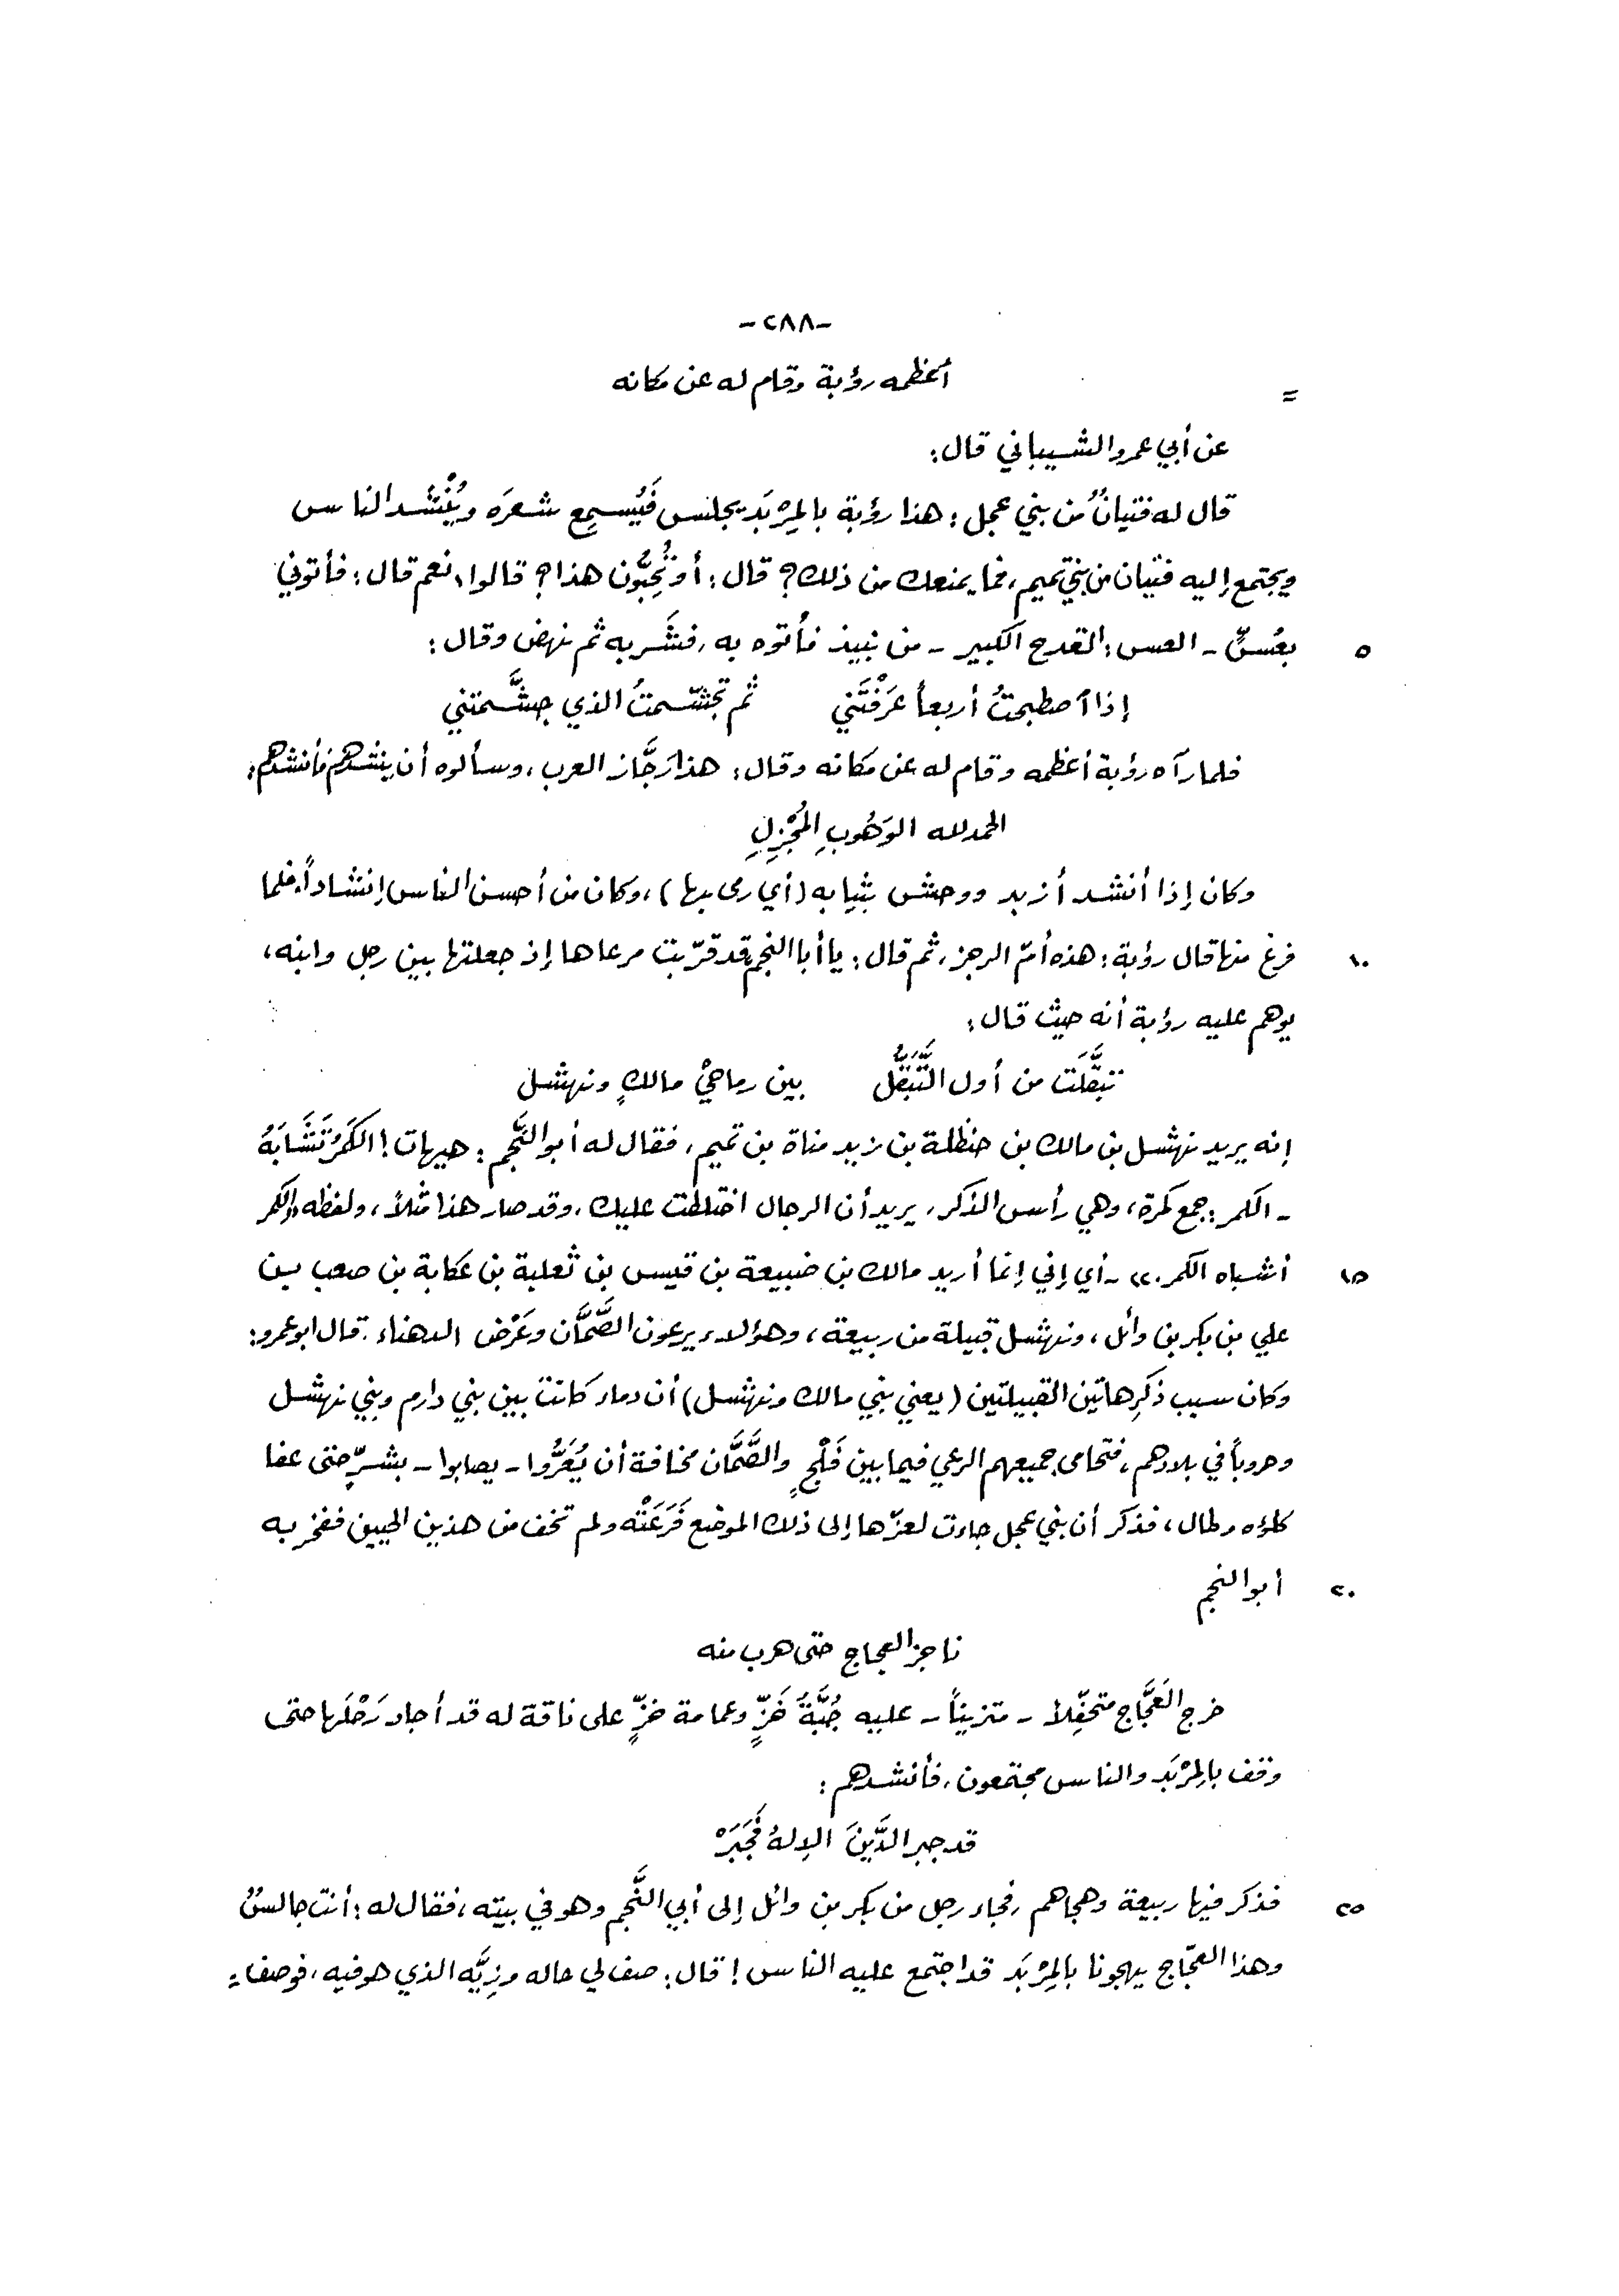 -٢٨٨-
= أعظمه رؤبة وقام له عن مكانه
عن أبي عمرو الشيباني قال:
قال له فتيانٌ من بني عجل: هذا رؤبة بالمِرْبَد يجلس فَيُسمِع شعرَه ويُنْشد الناس
ويجتمع إليه فتيان من بني تميم، فما يمنعك من ذلك؟ قال: أو تُحِبُّون هذا؟ قالوا: نعم قال: فأتوني
٥ بعُسٍّ - العس: القدح الكبير - من نبيذ فأتوه به، فشَربه ثم نهض وقال:
إذا اصطبحتُ أربعاً عَرَفْتَني ثم تجشّمتُ الذي جشَّمتني
فلما رآه رؤبة أعظمه وقام له عن مكانه وقال: هذا رَجَّاز العرب، وسألوه أن ينشدهم فأنشدهم:
الحمد لله الوَهُوبِ المُجْزِلِ
وكان إذا أنشد أزبد ووحش بثيابه (أي رمى بها)، وكان من أحسن الناس إنشاداً، فلما
١٠ فرغ منها قال رؤبة: هذه أمّ الرجز، ثم قال: يا أبا النجم قد قرّبت مرعاها إذ جعلتها بين رجل وابنه،
يوهم عليه رؤبة أنه حيث قال:
تبقَّلَت من أول التَّبَقُّل بين رماحيْ مالكٍ ونهشل
إنه يريد نهشل بن مالك بن حنظلة بن زيد مناة بن تميم، فقال له أبو النَّجم: هيهات! الكَمَرُ تَشَابَهُ
- الكمر: جمع كمرة، وهي رأس الذكر، يريد أن الرجال اختلطت عليك، وقد صار هذا مثلاً، ولفظه «الكمر
١٥ أشباه الكمر.» - أي إني إنما أريد مالك بن ضبيعة بن قيس بن ثعلبة بن عكابة بن صعب بـن
علي بن بكر بن وائل، ونهشل قبيلة من ربيعة، وهؤلاء يرعون الصَّمَّان وعَرْض الدهناء. قال ابو عمرو:
وكان سبب ذكرِ هاتين القبيلتين (يعني بني مالك ونهشل) أن دماء كانت بين بني دارم وبني نهشل
وحروباً في بلادهم، فتحامى جميعهم الرعي فيما بين فَلْجٍ والصَّمَّان مخافة أن يُعَرُّوا - يصابوا - بشرٍّ حتى عفا
كلؤه وطال، فذكر أن بني عجل جاءت لعزّها إلى ذلك الموضع فَرَعَتْه ولم تخف من هذين الحيين ففخر به
٢٠ أبو النجم
ناجز العجاج حتى هرب منه
خرج العَجَّاج متحفِّلاً - متزيناً - عليه جُبَّةُ خَزٍّ وعمامة خزٍّ على ناقة له قد أجاد رَحْلَها حتى
وقف بالمِرْبَد والناس مجتمعون، فأنشدهم:
قد جبر الدِّينَ الإلهُ فَجَبَرْ
٢٥ فذكر فيها ربيعة وهجاهم، فجاء رجل من بكر بن وائل إلى أبي النَّجم وهو في بيته، فقال له: أنت جالسٌ
وهذا العجّاج يهجونا بالمِرْبَد قد اجتمع عليه الناس! قال: صف لي حاله وزِيَّه الذي هو فيه، فوصف =